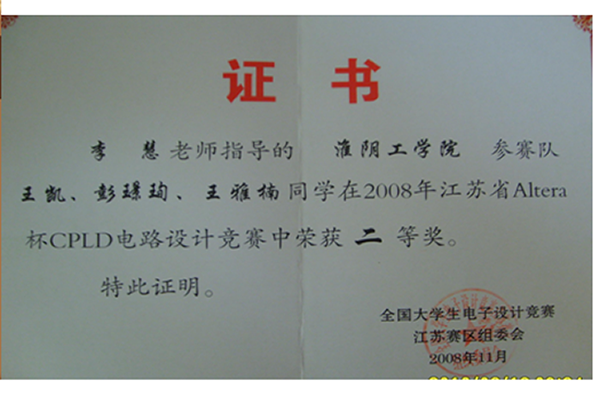 证书
李 慧老师指导的 淮阴工学院 参赛队
王凯、彭璟珣、王雅楠同学在2008年江苏省Altera
杯CPLD电路设计竞赛中荣获 二 等奖。
特此证明。
全国大学生电子设计竞赛
江苏赛区组委会
2008年11月